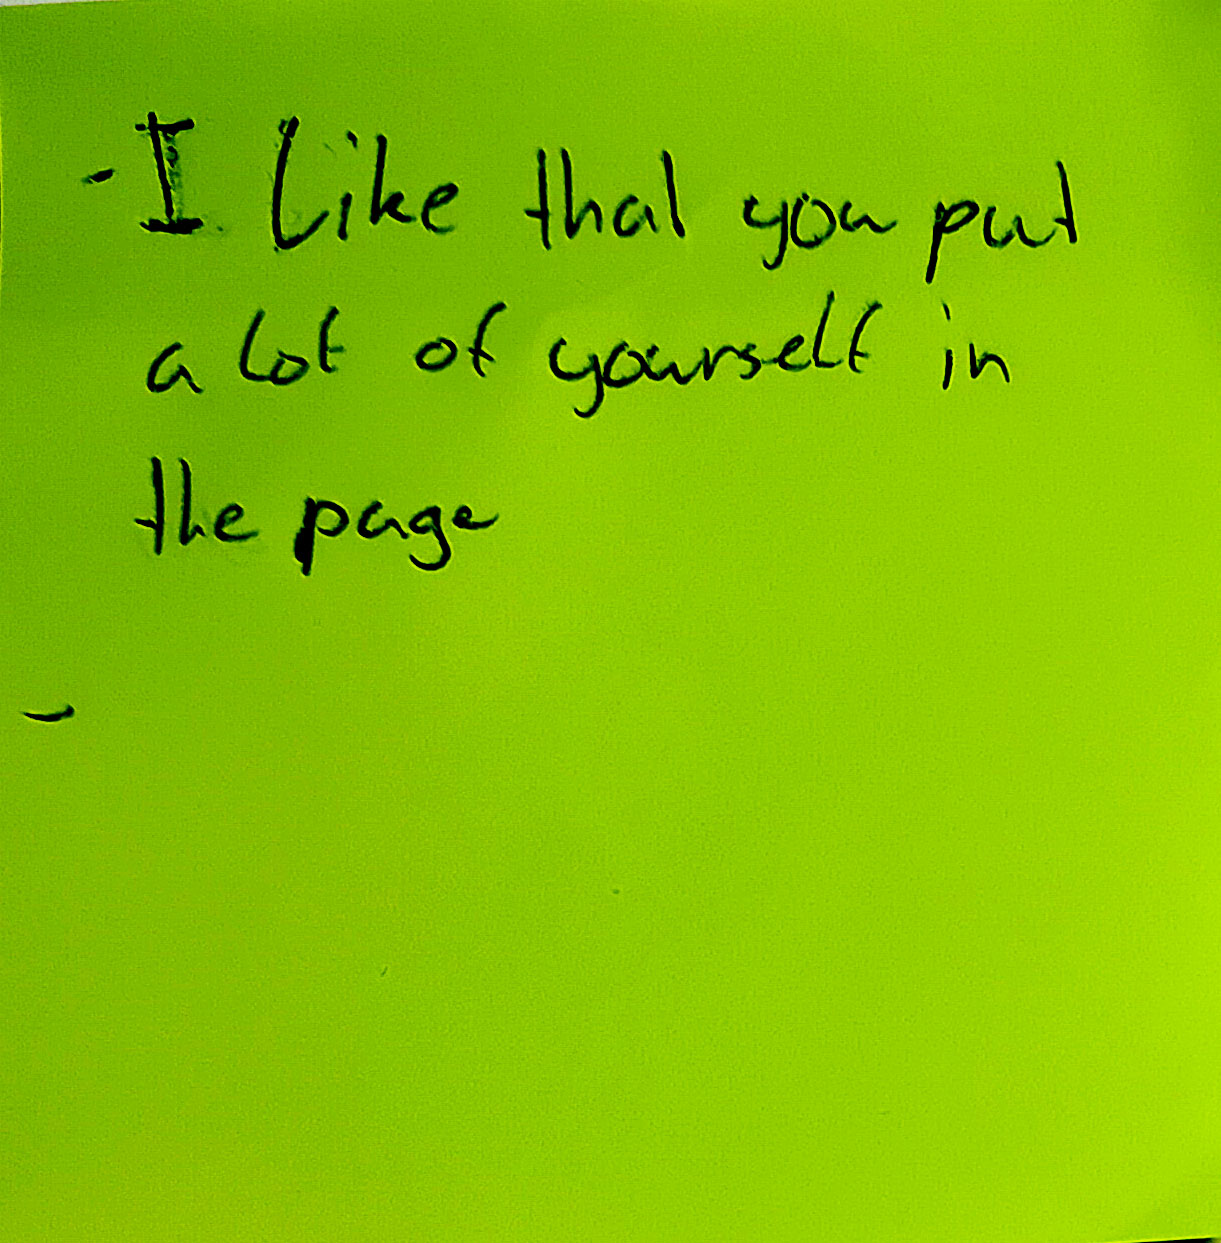 - I like that you put
a lot of yourself in
the page
-